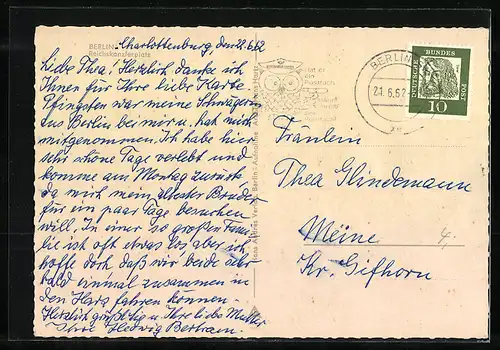 BERLIN-
Reichskanzlerplatz
Charlottenburg, den 22.6.62
Liebe Thea! Herzlich danke ich
Ihnen für Ihre liebe Karte.
Pfingsten war meine Schwägerin
aus Berlin bei mir u. hat mich
mitgenommen. Ich habe hier
sehr schöne Tage verlebt und
komme am Montag zurück
da mich mein ältester Bruder
für ein paar Tage besuchen
will. In einer so großen Fami-
lie ist oft etwas los, aber ich
hoffe doch, daß wir beide sehr
bald einmal zusammen in
den Harz fahren können.
Herzlich grüßt Sie u. Ihre liebe Mutter
Ihre Hedwig Bertram.
Hans Andres Verlag, Berlin
BERLIN
21.6.62
DEUTSCHE BUNDESPOST
10
Fräulein
Thea Glindemann
Meine
Kr. Gifhorn
4,-